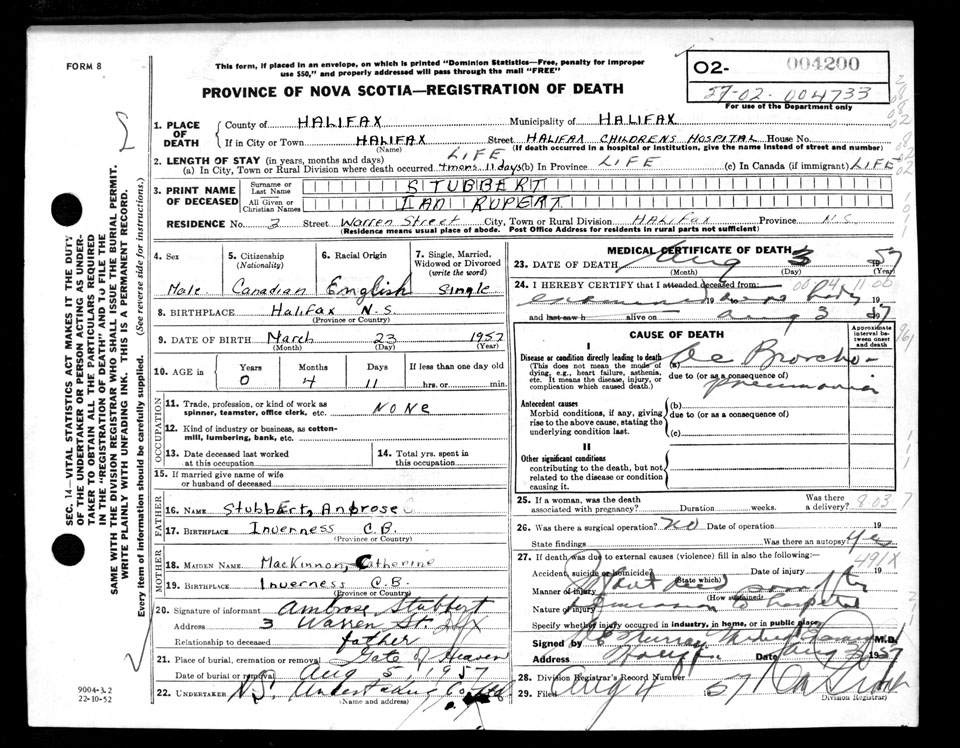 FORM 8
This form, if placed in an envelope, on which is printed "Dominion Statistics—Free, penalty for improper
use $50," and properly addressed will pass through the mail "FREE"
PROVINCE OF NOVA SCOTIA—REGISTRATION OF DEATH
O2- 004200
57-02-004733
For use of the Department only
1. PLACE OF DEATH
County of HALIFAX Municipality of HALIFAX
If in City or Town HALIFAX Street HALIFAX CHILDRENS HOSPITAL House No.
(Name) (If death occurred in a hospital or institution, give the name instead of street and number)
2. LENGTH OF STAY (in years, months and days) LIFE
(a) In City, Town or Rural Division where death occurred 4 mons 11 days (b) In Province LIFE (c) In Canada (if immigrant) LIFE
3. PRINT NAME OF DECEASED
Surname or Last Name STUBBERT
All Given or Christian Names IAN RUPERT
RESIDENCE No. 3 Street Warren Street City, Town or Rural Division HALIFAX Province N.S.
(Residence means usual place of abode. Post Office Address for residents in rural parts not sufficient)
4. Sex Male
5. Citizenship (Nationality) Canadian
6. Racial Origin English
7. Single, Married, Widowed or Divorced (write the word) Single
8. BIRTHPLACE Halifax N.S.
(Province or Country)
9. DATE OF BIRTH March 23 1957
(Month) (Day) (Year)
10. AGE in Years Months Days If less than one day old
0 4 11 hrs. or min.
OCCUPATION
11. Trade, profession, or kind of work as
spinner, teamster, office clerk, etc. NONE
12. Kind of industry or business, as cotton-
mill, lumbering, bank, etc.
13. Date deceased last worked
at this occupation
14. Total yrs. spent in
this occupation
15. If married give name of wife
or husband of deceased
FATHER
16. NAME Stubbert, Ambrose
17. BIRTHPLACE Inverness C.B.
(Province or Country)
MOTHER
18. MAIDEN NAME MacKinnon, Catherine
19. BIRTHPLACE Inverness C.B.
(Province or Country)
20. Signature of informant Ambrose Stubbert
Address 3 Warren St. Hfx
Relationship to deceased father
21. Place of burial, cremation or removal Gate of Heaven
Date of burial or removal Aug 5, 1957
22. UNDERTAKER N.S. Undertaking Co Ltd
(Name and address)
MEDICAL CERTIFICATE OF DEATH
23. DATE OF DEATH Aug 3 1957
(Month) (Day) (Year)
24. I HEREBY CERTIFY that I attended deceased from:
examined body
19
and last saw h alive on aug 3 1957
CAUSE OF DEATH
Approximate interval between onset and death
I
Disease or condition directly leading to death
(This does not mean the mode of dying, e.g., heart failure, asthenia, etc. It means the disease, injury, or complication which caused death.)
(a) Ac Broncho-
due to (or as a consequence of)
pneumonia
Antecedent causes
Morbid conditions, if any, giving rise to the above cause, stating the underlying condition last.
(b)
due to (or as a consequence of)
(c)
II
Other significant conditions
contributing to the death, but not related to the disease or condition causing it.
25. If a woman, was the death
associated with pregnancy? Duration weeks. Was there a delivery?
8 03 7
26. Was there a surgical operation? NO Date of operation 19
State findings Was there an autopsy? Yes
27. If death was due to external causes (violence) fill in also the following:
491X
Accident, suicide or homicide? (State which) Date of injury 19
Manner of injury (How sustained)
Nature of injury admission to hospital
Specify whether injury occurred in industry, in home, or in public place
Signed by Murray M.D.
Address Halifax Date aug 3 1957
28. Division Registrar's Record Number
29. Filed Aug 4 1957
Division Registrar)
SEC. 14—VITAL STATISTICS ACT MAKES IT THE DUTY
OF THE UNDERTAKER OR PERSON ACTING AS UNDER-
TAKER TO OBTAIN ALL THE PARTICULARS REQUIRED
IN THE "REGISTRATION OF DEATH" AND TO FILE THE
SAME WITH THE DIVISION REGISTRAR WHO SHALL ISSUE THE BURIAL PERMIT.
WRITE PLAINLY WITH UNFADING INK. THIS IS A PERMANENT RECORD.
Every item of information should be carefully supplied. (See reverse side for instructions.)
9004-3.2
22-10-52